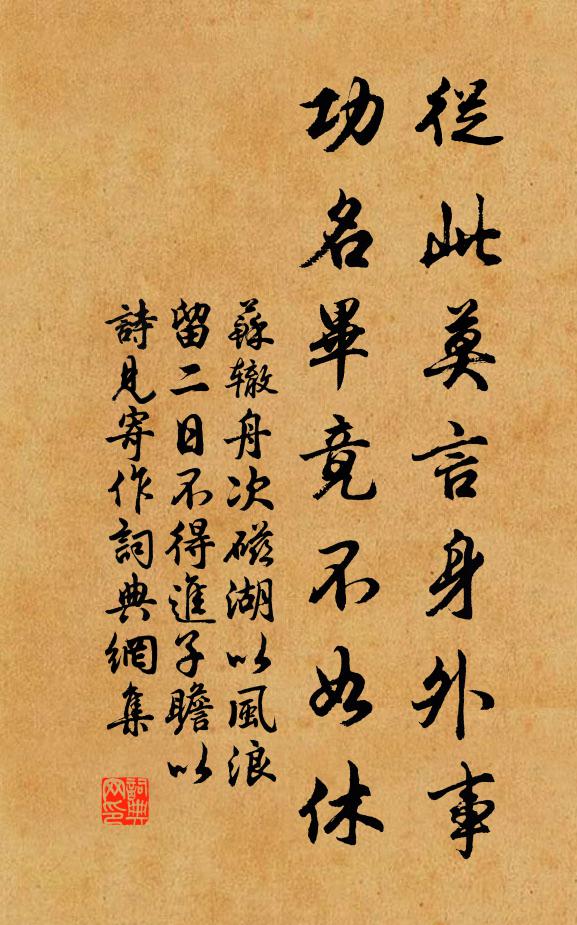 從此莫言身外事
功名畢竟不如休
蘇辙舟次磁湖以風浪
留二日不得進子瞻以
詩見寄作詞典網集
詞典網印